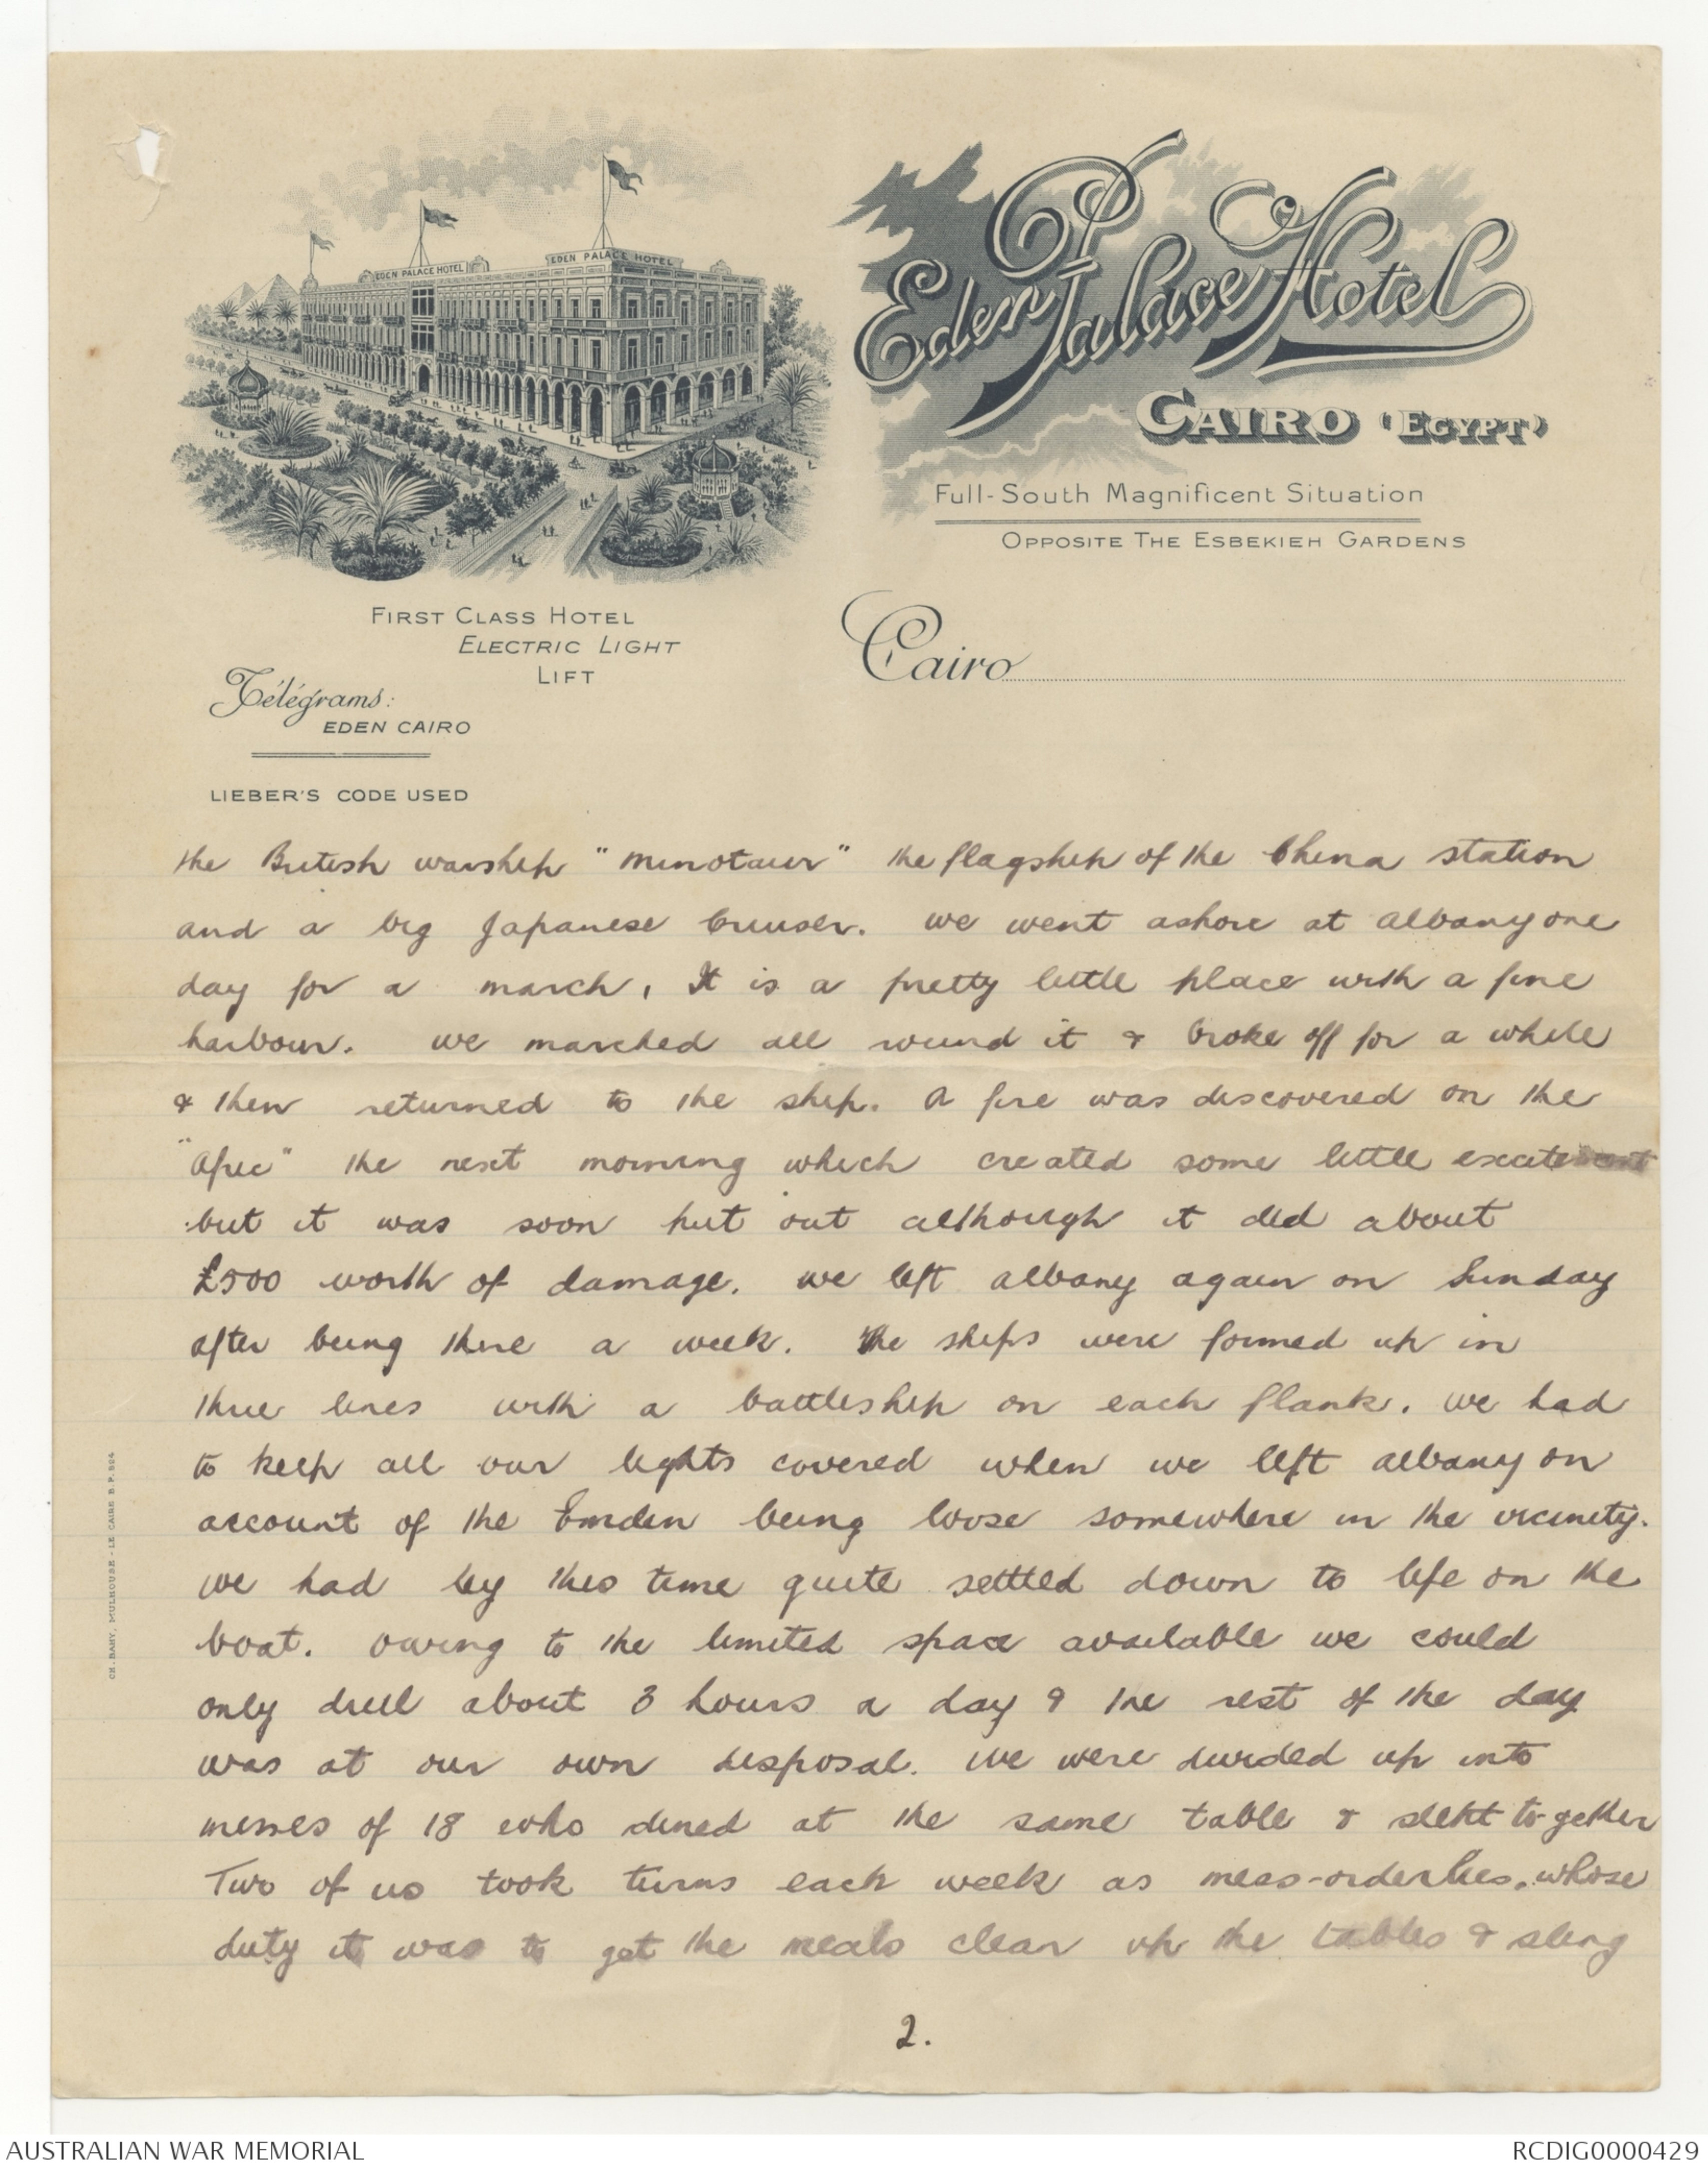 EDEN PALACE HOTEL
EDEN PALACE HOTEL
Eden Palace Hotel
CAIRO (EGYPT)
Full-South Magnificent Situation
OPPOSITE THE ESBEKIEH GARDENS
FIRST CLASS HOTEL
ELECTRIC LIGHT
LIFT
Cairo
Télégrams:
EDEN CAIRO
LIEBER'S CODE USED
the British warship "Minotaur" the flagship of the China station
and a big Japanese Cruiser. We went ashore at Albany one
day for a march, It is a pretty little place with a fine
harbour. We marched all round it & broke off for a while
& then returned to the ship. A fire was discovered on the
"Afric" the next morning which created some little excitement
but it was soon put out although it did about
£500 worth of damage. We left Albany again on Sunday
after being there a week. The ships were formed up in
three lines with a battleship on each flank. We had
to keep all our lights covered when we left Albany on
account of the Emden being loose somewhere in the vicinity.
We had by this time quite settled down to life on the
boat. Owing to the limited space available we could
only drill about 3 hours a day & the rest of the day
was at our own disposal. We were divided up into
messes of 18 who dined at the same table & slept to-gether
Two of us took turns each week as mess-orderlies, whose
duty it was to get the meals clear up the tables & sling
2.
CH. BAHY, MULHOUSE - LE CAIRE B.P. 504
AUSTRALIAN WAR MEMORIAL
RCDIG0000429